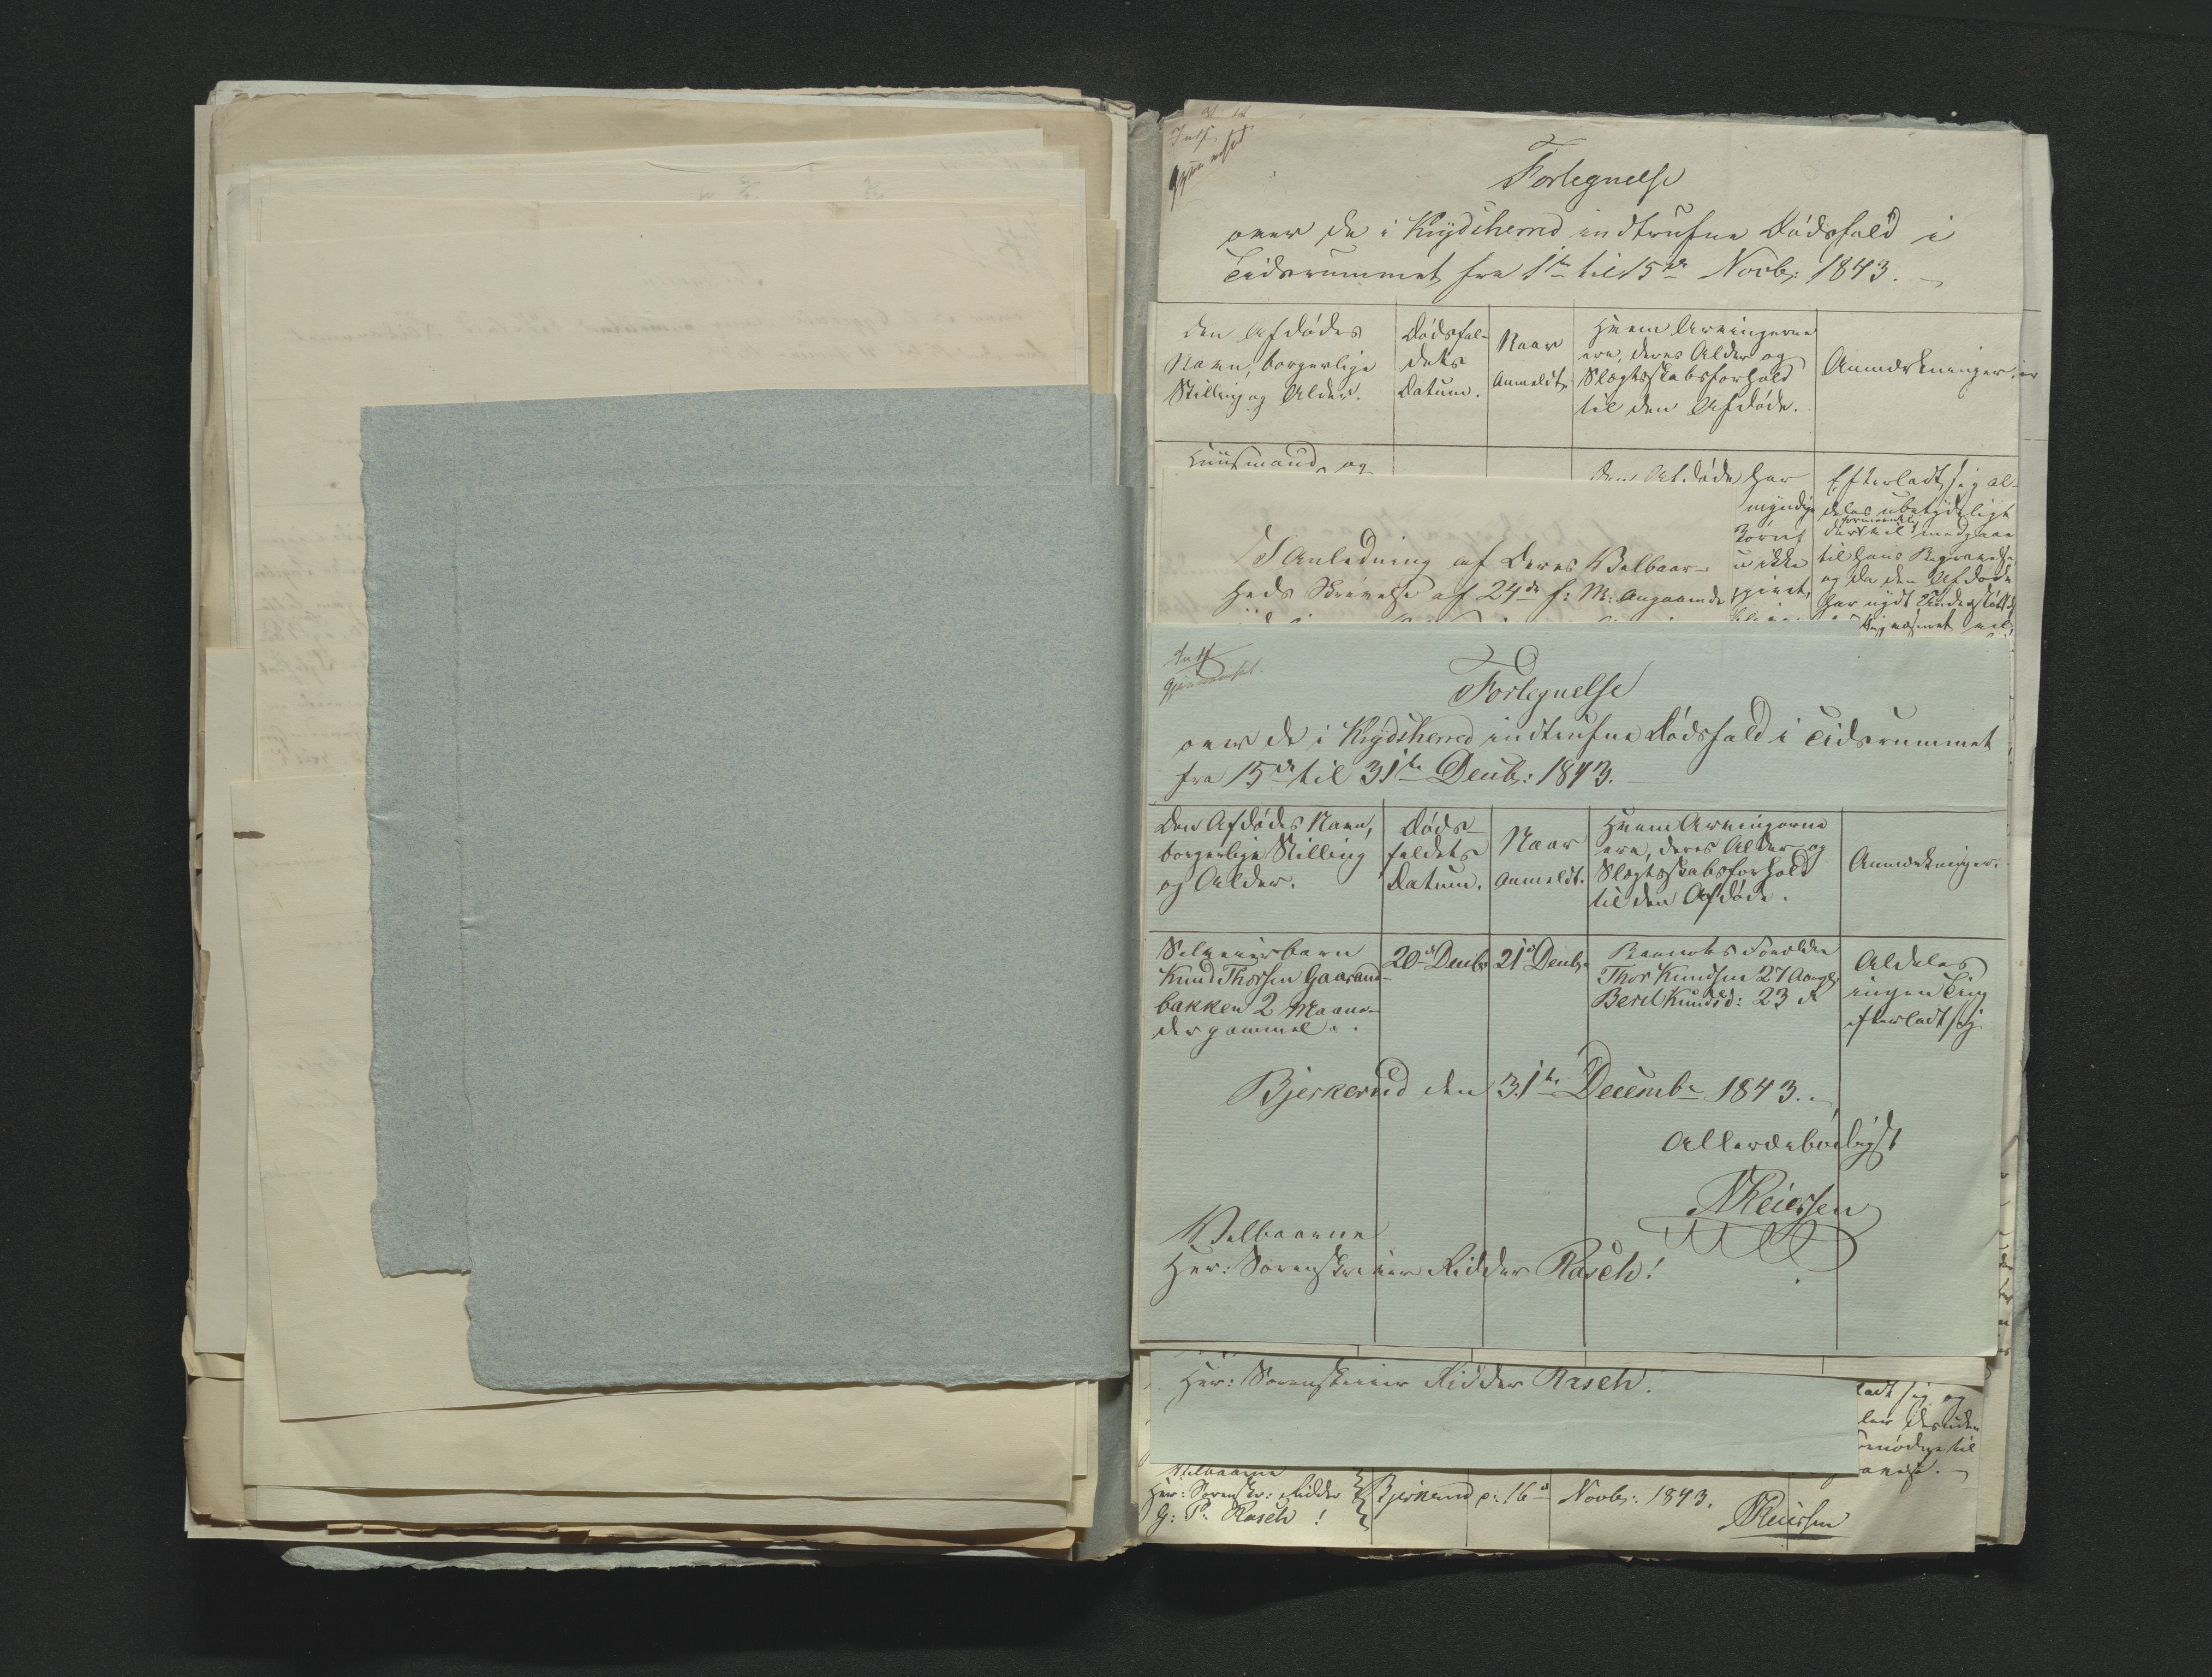 Intf
Fortegnelse
over de i Krydsherred indtrufne Dødsfald i
Tidsrummet fra 1ste til 15de Novbr: 1843.
Den Afdødes
Navn, borgerlige
Stilling og Alder.
Dødsfal-
dets
Datum.
Naar
Anmeldt.
Hvem Arvingerne
ere, deres Alder og
Slægtsskabsforhold
til den Afdøde.
Anmærkninger.
Huusmand og
Den Afdøde har
myndige
Efterladt sig al-
deles ubetydeligt
til hans Begravelse
og da den Afdøde
har nydt Understøtt
I Anledning af Deres Velbaar-
heds Skrivelse af 24de f: M: angaaende
Intf
Fortegnelse
over de i Krydsherred indtrufne Dødsfald i Tidsrummet
fra 15de til 31te Decbr: 1843.
Den Afdødes Navn,
borgerlige Stilling
og Alder.
Døds-
faldets
Datum.
Naar
Anmeldt.
Hvem Arvingerne
ere, deres Alder og
Slægtsskabsforhold
til den Afdøde.
Anmærkninger.
Selveierbarn
Knud Thorsen Gaarand-
bakken 2 Maane-
der gammel.
20de Decbr
21de Decbr
Barnets Forældre
Thor Knudsen 27 Aar gl:
Berit Knudsd: 23 d
Aldeles
ingen Ting
efterladt sig
Bjerkerud den 31te Decembr 1843.
Allerærbødigst
NReiersen
Velbaarne
Her: Sorenskriver Ridder Rasch!
Her: Sorenskriver Ridder Rasch.
ladt sig og
Velbaarne
Her: Sorenskr: Ridder
G: P: Rasch!
Bjerkerud d: 16de Novbr: 1843.
NReiersen